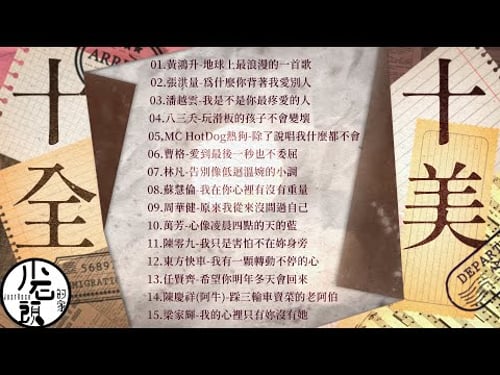 十全
十美
01.黃鴻升-地球上最浪漫的一首歌
02.張洪量-為什麼你背著我愛別人
03.潘越雲-我是不是你最疼愛的人
04.八三夭-玩滑板的孩子不會變壞
05.MC HotDog熱狗-除了說唱我什麼都不會
06.曹格-愛到最後一秒也不委屈
07.林凡-告別像低迴溫婉的小調
08.蘇慧倫-我在你心裡有沒有重量
09.周華健-原來我從來沒問過自己
10.萬芳-心像凌晨四點的天的藍
11.陳零九-我只是害怕不在妳身旁
12.東方快車-我有一顆轉動不停的心
13.任賢齊-希望你明年冬天會回來
14.陳慶祥(阿牛)-踩三輪車賣菜的老阿伯
15.梁家輝-我的心裡只有妳沒有她
56891